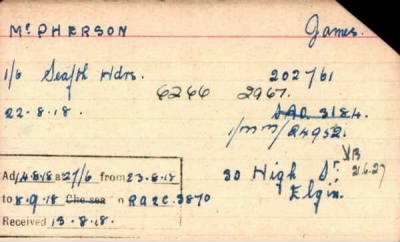 McPHERSON James.
1/6 Sea/th Hdrs. 202761
6266 2967.
22.8.18. SAD. 3184.
1/MM/24952.
Ad 14.8.18 at 27/6 from 23-8-18 30 High St. 21.6.27
to 8.9.18 Chelsea n RO2C.3870 Elgin.
Received 13.8.18.